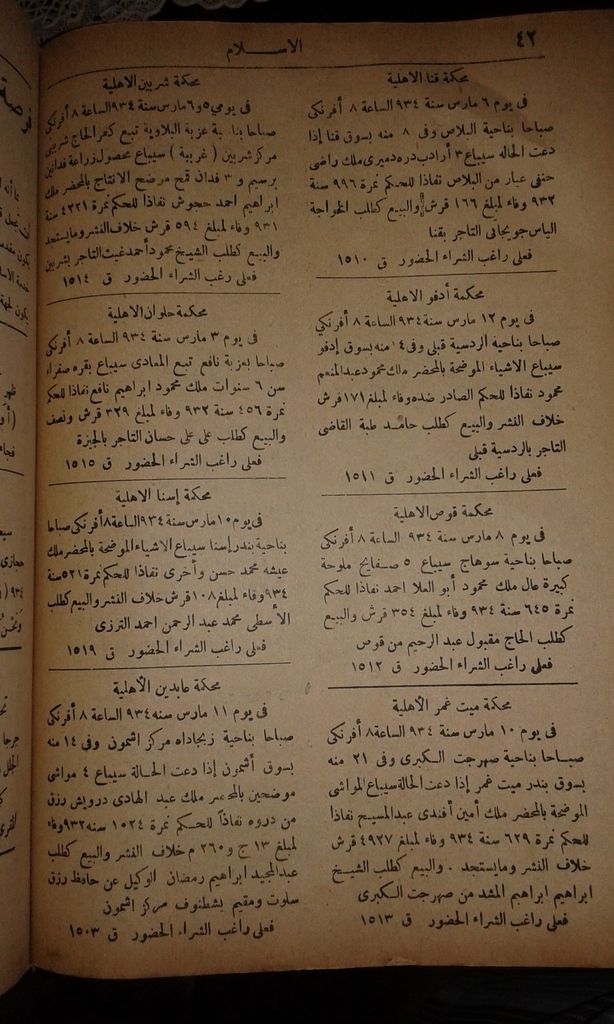 ٤٢
الاســلام
محكمة قنا الاهلية
فى يوم ٦ مارس سنة ٩٣٤ الساعة ٨ أفرنكى
صباحا بناحية البلاص وفى ٨ منه بسوق قنا إذا
دعت الحاله سيباع ٣ أرادب دره دميرى ملك راضى
حنفى عبار من البلاص نفاذا للحكم نمرة ٩٩٦ سنة
٩٣٢ وفاء لمبلغ ١٦٦ قرش والبيع كطلب الخواجة
الياس جويجانى التاجر بقنا
فعلى راغب الشراء الحضور ق ١٥١٠
محكمة أدفو الاهلية
فى يوم ١٢ مارس سنة ٩٣٤ الساعة ٨ أفرنكي
صباحا بناحيه الردسية قبلى وفى ١٤ منه بسوق إدفو
سيباع الاشياء الموضحة بالمحضر ملك محمود عبد المنعم
محمود نفاذا للحكم الصادر ضده وفاء لمبلغ ١٧١ قرش
خلاف النشر والبيع كطلب حامد طبة القاضى
التاجر بالردسية قبلى
فعلى راغب الشراء الحضور ق ١٥١١
محكمة قوص الاهلية
فى يوم ٨ مارس سنة ٩٣٤ الساعة ٨ أفرنكى
صباحا بناحية سوهاج سيباع ٥ صفايح ملوحة
كبيرة مال ملك محمود أبو العلا احمد نفاذا للحكم
نمرة ٦٤٥ سنة ٩٣٤ وفاء لمبلغ ٣٥٤ قرش والبيع
كطلب الحاج مقبول عبد الرحيم من قوص
فعلى راغب الشراء الحضور ق ١٥١٢
محكمة ميت غمر الأهلية
فى يوم ١٠ مارس سنة ٩٣٤ الساعة ٨ أفرنكى
صباحا بناحية صهرجت الكبرى وفى ٢١ منه
بسوق بندر ميت غمر إذا دعت الحالة سيباع المواشى
الموضحة بالمحضر ملك أمين أفندى عبد المسيح نفاذا
للحكم نمرة ٦٢٩ سنة ٩٣٤ وفاء لمبلغ ٤٩٢٧ قرش
خلاف النشر ومايستجد . والبيع كطلب الشيخ
ابراهيم ابراهيم المشد من صهرجت الكبرى
فعلى راغب الشراء الحضور ق ١٥١٣
محكمة شربين الاهلية
فى يومي ٥ و ٦ مارس سنة ٩٣٤ الساعة ٨ أفرنكى
صباحا بناحية عزبة البلاوية تبع كفر الحاج شربينى
مركز شربين ( غربية ) سيباع محصول زراعة فدانين
برسيم و ٣ فدان قمح مرضح الانتاج بالمحضر ملك
ابراهيم احمد حجوش نفاذا للحكم نمرة ٤٢٢١ سنة
٩٣١ وفاء لمبلغ ٥٩٤ قرش خلاف النشر ومايستجد
والبيع كطلب الشيخ محمود أحمد غيث التاجر بشربين
فعلى رغب الشراء الحضور ق ١٥١٤
محكمة حلوان الاهلية
فى يوم ٣ مارس سنة ٩٣٤ الساعة ٨ أفرنكى
صباحا بعزبة نافع تبع المعادى سيباع بقره صفراء
سن ٦ سنوات ملك محمود ابراهيم نافع نفاذا للحكم
نمرة ٤٥٦ سنة ٩٣٢ وفاء لمبلغ ٣٢٩ قرش ونصف
والبيع كطلب على على حسان التاجر بالجيزة
فعلى راغب الشراء الحضور ق ١٥١٥
محكمة إسنا الاهلية
فى يوم ١٠ مارس سنة ٩٣٤ الساعة ٨ أفرنكى صباحا
بناحية بندر إسنا سيباع الاشياء الموضحة بالمحضر ملك
عيشه محمد حسن وأخرى نفاذا للحكم نمرة ٥٢١ سنة
٩٣٤ وفاء لمبلغ ١٠٨ قرش خلاف النشر والبيع كطلب
الأسطى محمد عبد الرحمن احمد الترزى
فعلى راغب الشراء الحضور ق ١٥١٩
محكمة عابدين الأهلية
فى يوم ١١ مارس سنه ٩٣٤ الساعة ٨ أفرنكى
صباحا بناحية زيجاداه مركز اشمون وفى ١٤ منه
بسوق أشمون إذا دعت الحالة سيباع ٤ مواشى
موضحين بالمحضر ملك عبد الهادى درويش رزق
من دروه نفاذاً للحكم نمرة ١٠٢٤ سنه ٩٣٢ وفاء
لمبلغ ١٣ ج و ٢٦٠ م خلاف النشر والبيع كطلب
عبدالمجيد ابراهيم رمضان الوكيل عن حافظ رزق
سلوت ومقيم بشطنوف مركز اشمون
فعلى راغب الشراء الحضور ق ١٥٠٣